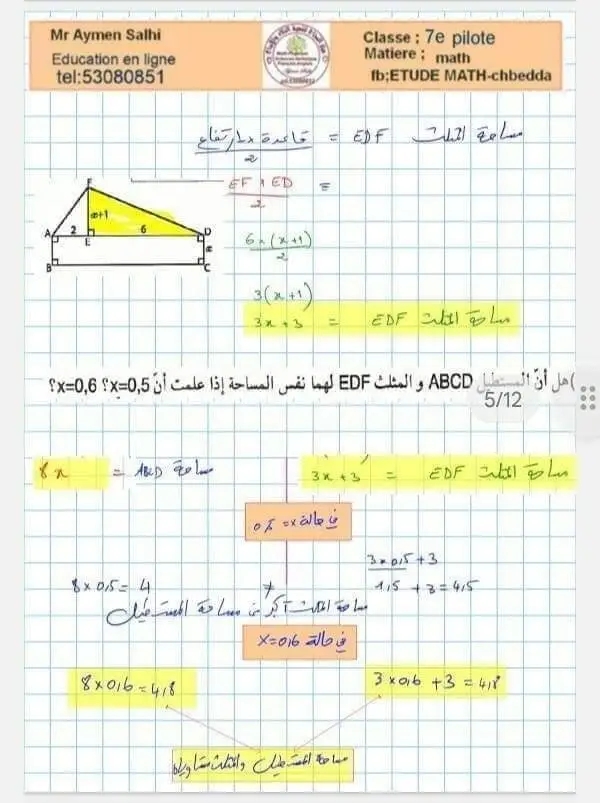 Mr Aymen Salhi
Education en ligne
tel:53080851
Classe : 7e pilote
Matiere : math
fb;ETUDE MATH-chbedda
مساحة المثلث EDF = قاعدة × ارتفاع
2
= EF × ED
2
6 × (x+1)
2
3(x+1)
مساحة المثلث EDF = 3x+3
F
x+1
A 2 E 6 D
x
B C
)هل أنّ المستطيل ABCD و المثلث EDF لهما نفس المساحة إذا علمت أنّ x=0,5؟ x=0,6؟
5/12
مساحة المثلث EDF = 3x+3
مساحة ABCD = 8x
في حالة x=0,5
3×0,5+3
1,5+3=4,5
≠
8×0,5=4
مساحة المثلث أكبر من مساحة المستطيل
في حالة x=0,6
3×0,6+3=4,8
8×0,6=4,8
مساحة المستطيل والمثلث متساويان